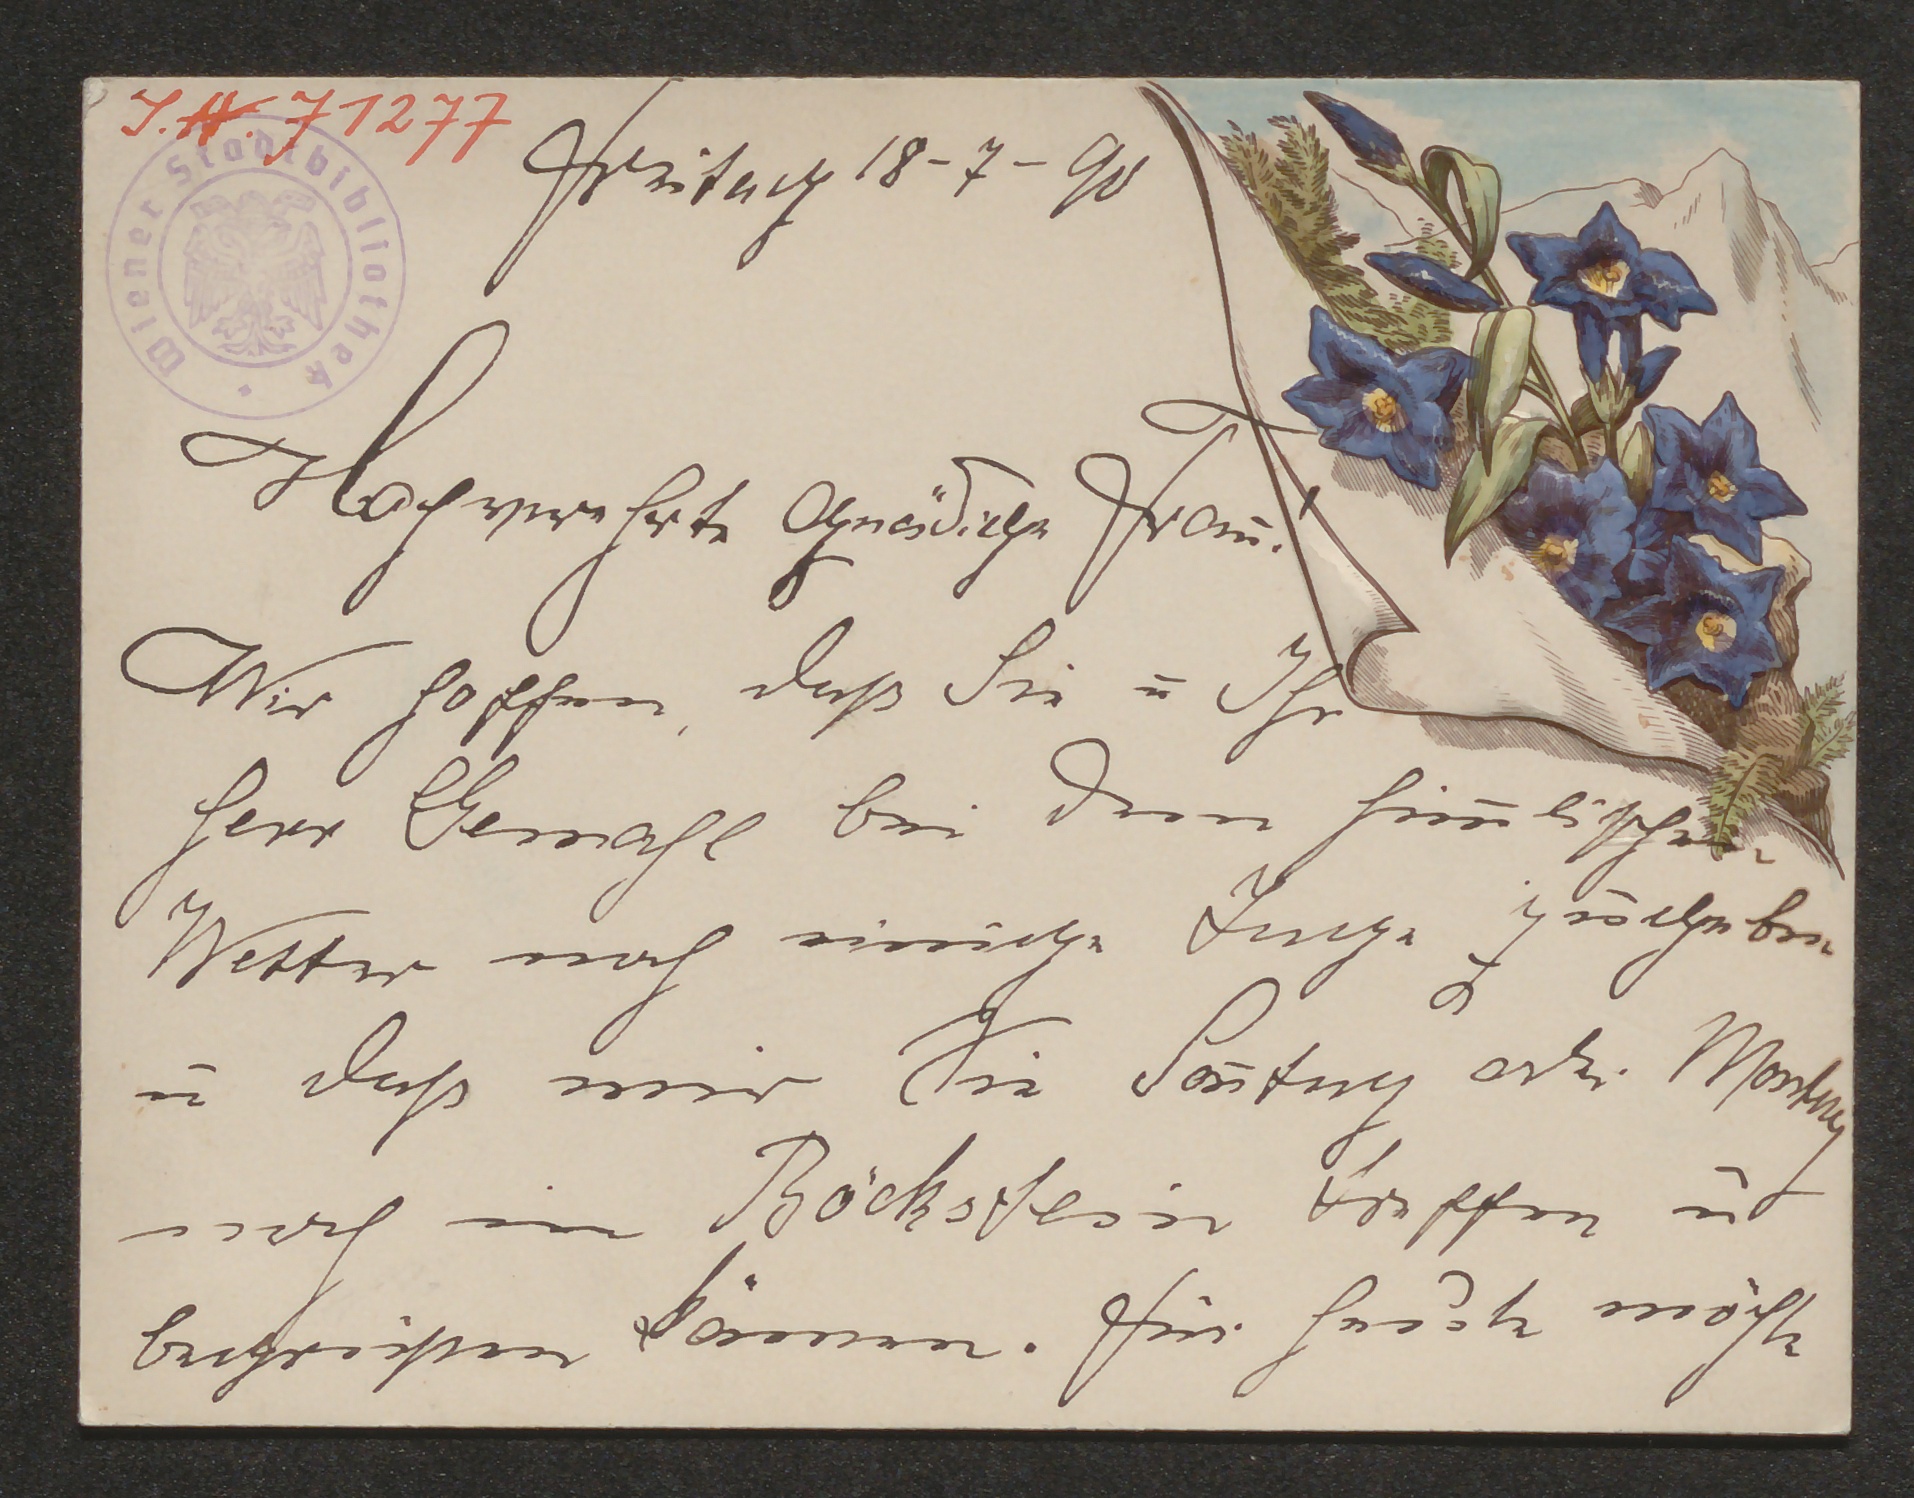 I.N. 71277
Wiener Stadtbibliothek
Freitag 18-7-90
Hochverehrte gnädige Frau!
Wir hoffen, daß Sie u Ihr
Herr Gemahl bei dem him̅lischen
Wetter noch einige Tage zugeben
u daß wir Sie Son̅tag oder Montag
noch in Böckstein treffen u
begrüßen können. Für heute möchte